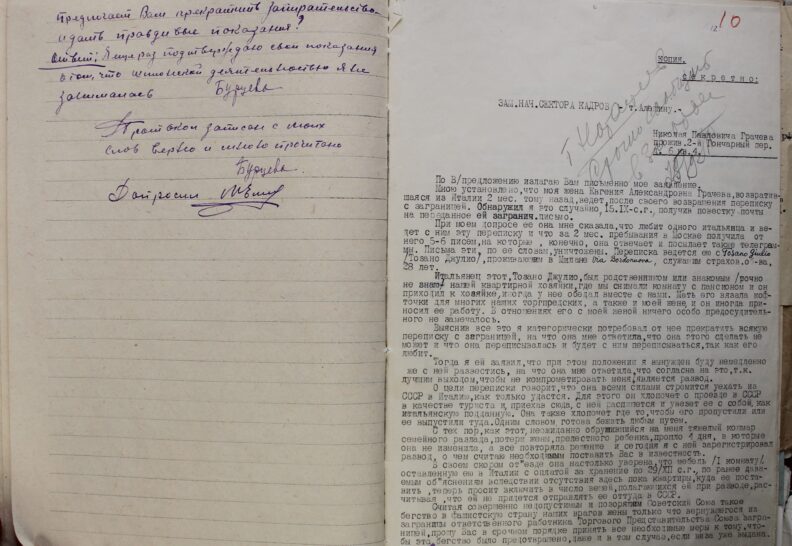 предлагает Вам прекратить запирательство
и дать правдивые показания?
Ответ: Я еще раз подтверждаю свои показания
о том, что шпионской деятельностью я не
занималась Бурцева
Протокол записан с моих
слов верно и мною прочитано
Бурцева
Допросил
10
копия.
секретно:
ЗАМ.НАЧ.СЕКТОРА КАДРОВ т.Алешину.-
Срочно сообщить
Николая Павловича Грачева
прожив. 2-й Гончарный пер.
По В/предложению излагаю Вам письменно мое заявление.
Мною установлено, что моя жена Евгения Александровна Грачева, возвратив-
шаяся из Италии 2 мес. тому назад, ведет, после своего возвращения переписку
с заграницей. Обнаружил я это случайно, 15.IX-с.г., получив повестку почты
на переданное ей загранич. письмо.
При моем допросе ее она мне сказала, что любит одного итальянца и ве-
дет с ним эту переписку и что за 2 мес. пребывания в Москве получила от
него 5-6 писем, на которые, конечно, она отвечает и посылает также телеграм-
мы. Письма эти, по ее словам, уничтожены. Переписка ведется ею с Tosano Giulio
/Тозано Джулио/, проживающим в Милане Via служащим страхов. о-ва,
28 лет.
Итальянец этот, Тозано Джулио, был родственником или знакомым /точно
не знаю/ нашей квартирной хозяйки, где мы снимали комнату с пансионом и он
приходил к хозяйке, иногда у нее обедал вместе с нами. Мать его вязала коф-
точки для многих наших торгпредских, а также и моей жене и он иногда при-
носил ее работу. В отношениях его с моей женой ничего особо предосудитель-
ного не замечалось.
Выяснив все это я категорически потребовал от нее прекратить всякую
переписку с заграницей, на что она мне ответила, что она этого сделать не
может и что она переписывалась и будет с ним переписываться, так как его
любит.
Тогда я ей заявил, что при этом положении я вынужден буду немедленно
же с ней развестись, на что она мне ответила, что согласна на это, т.к.
лучшим выходом, чтобы не компрометировать меня, является развод.
О цели переписки говорит, что она всеми силами стремится уехать из
СССР в Италию, как только удастся. Для этого он хлопочет о проезде в СССР
в качестве туриста и, приехав сюда, с ней распишется и увезет ее с собой, как
итальянскую подданную. Она также хлопочет где то, чтобы его пропустили или
ее выпустили туда. Одним словом готова бежать любым путем.
С тех пор, как этот, неожиданно обрушившийся на меня тяжелый кошмар
семейного разлада, потери жены, прелестного ребенка, прошло 4 дня, в которые
она не изменила, а все повторяла решение и сегодня я с ней зарегистрировал
развод, о чем считаю необходимым поставить Вас в известность.
В своем скором от"езде она настолько уверена, что мебель /1 комнату/
оставленную ею в Италии с оплатой за хранение по 29/XII с.г., по ранее давае-
емым об"яснениям вследствии отсутствия здесь пока квартиры, куда ее поста-
вить, теперь просит включить в число вещей, полагающихся ей при разводе, рас-
читывая, что ей не придется отправлять ее оттуда в СССР.
Считая совершенно недопустимым и позорящим Советский Союз такое
бегство в фашистскую страну наших врагов жены только что вернувшегося из
заграницы ответственного работника Торгового Представительства Союза загра-
ницей, прошу Вас в срочном порядке принять все необходимые меры к тому, что-
бы это бегство было предотвращено, даже и в том случае, если виза уже выдана.